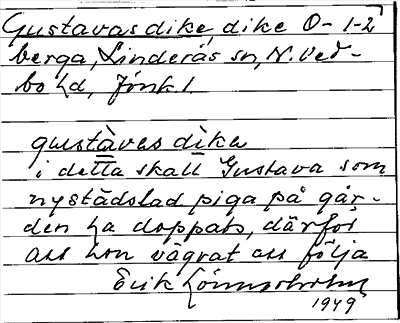 Gustavas dike, dike O-1-2
berga, Linderås sn, N. Ved-
bo hd, Jönk l
gustàvas dìka
i detta skall Gustava som
nystädslad piga på går-
den ha doppats, därför
att hon vägrat att följa
Erik Lönnerholm
1949